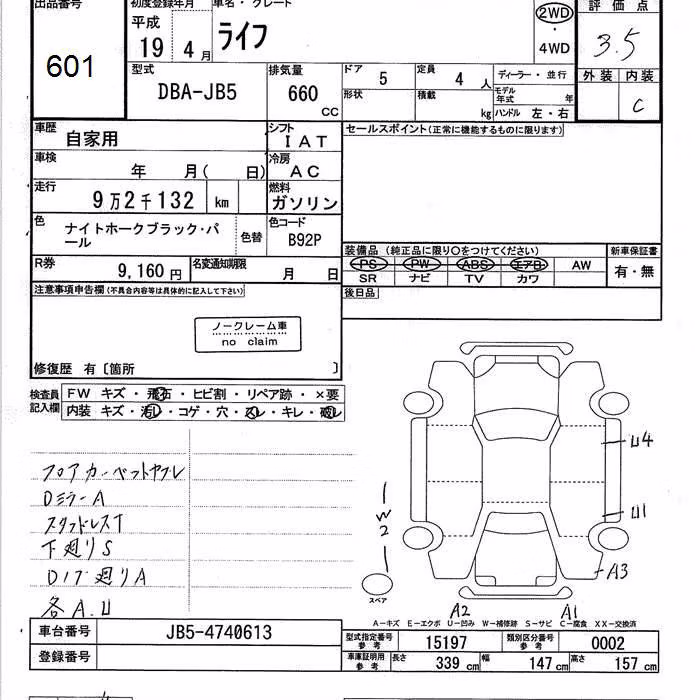 出品番号
601
初度登録年月
平成
19 4月
車名・グレード
ライフ
2WD
・
4WD
評価点
3.5
外装 内装
C
型式
DBA-JB5
排気量
660 CC
ドア 5
形状
定員 4 人
積載 kg
ディーラー・並行
モデル年式 年
ハンドル 左・右
車歴 自家用
シフト IAT
車検 年 月( 日)
冷房 AC
走行 9万2千132 km
燃料 ガソリン
色 ナイトホークブラック・パール
色替
色コード B92P
R券 9,160円
名変通知期限 月 日
セールスポイント(正常に機能するものに限ります)
装備品 (純正品に限り○をつけてください)
PS PW ABS エアB AW
SR ナビ TV カワ
新車保証書
有・無
後日品
注意事項申告欄(不具合内容等は具体的に記入して下さい)
ノークレーム車
no claim
修復歴 有〔箇所 〕
検査員記入欄
FW キズ・飛石・ヒビ割・リペア跡・×要
内装 キズ・汚レ・コゲ・穴・スレ・キレ・破レ
フロアカーペットヤブレ
Dミラー A
スタッドレスT
下廻り S
廻り A
各A.U
U4
U1
W2
A3
A2
A1
スペア
A−キズ E−エクボ U−凹み W−補修跡 S−サビ C−腐食 XX−交換済
車台番号 JB5-4740613
登録番号
型式指定番号 参考 15197
類別区分番号 参考 0002
車庫証明用 参考 長さ 339 cm 幅 147 cm 高さ 157 cm